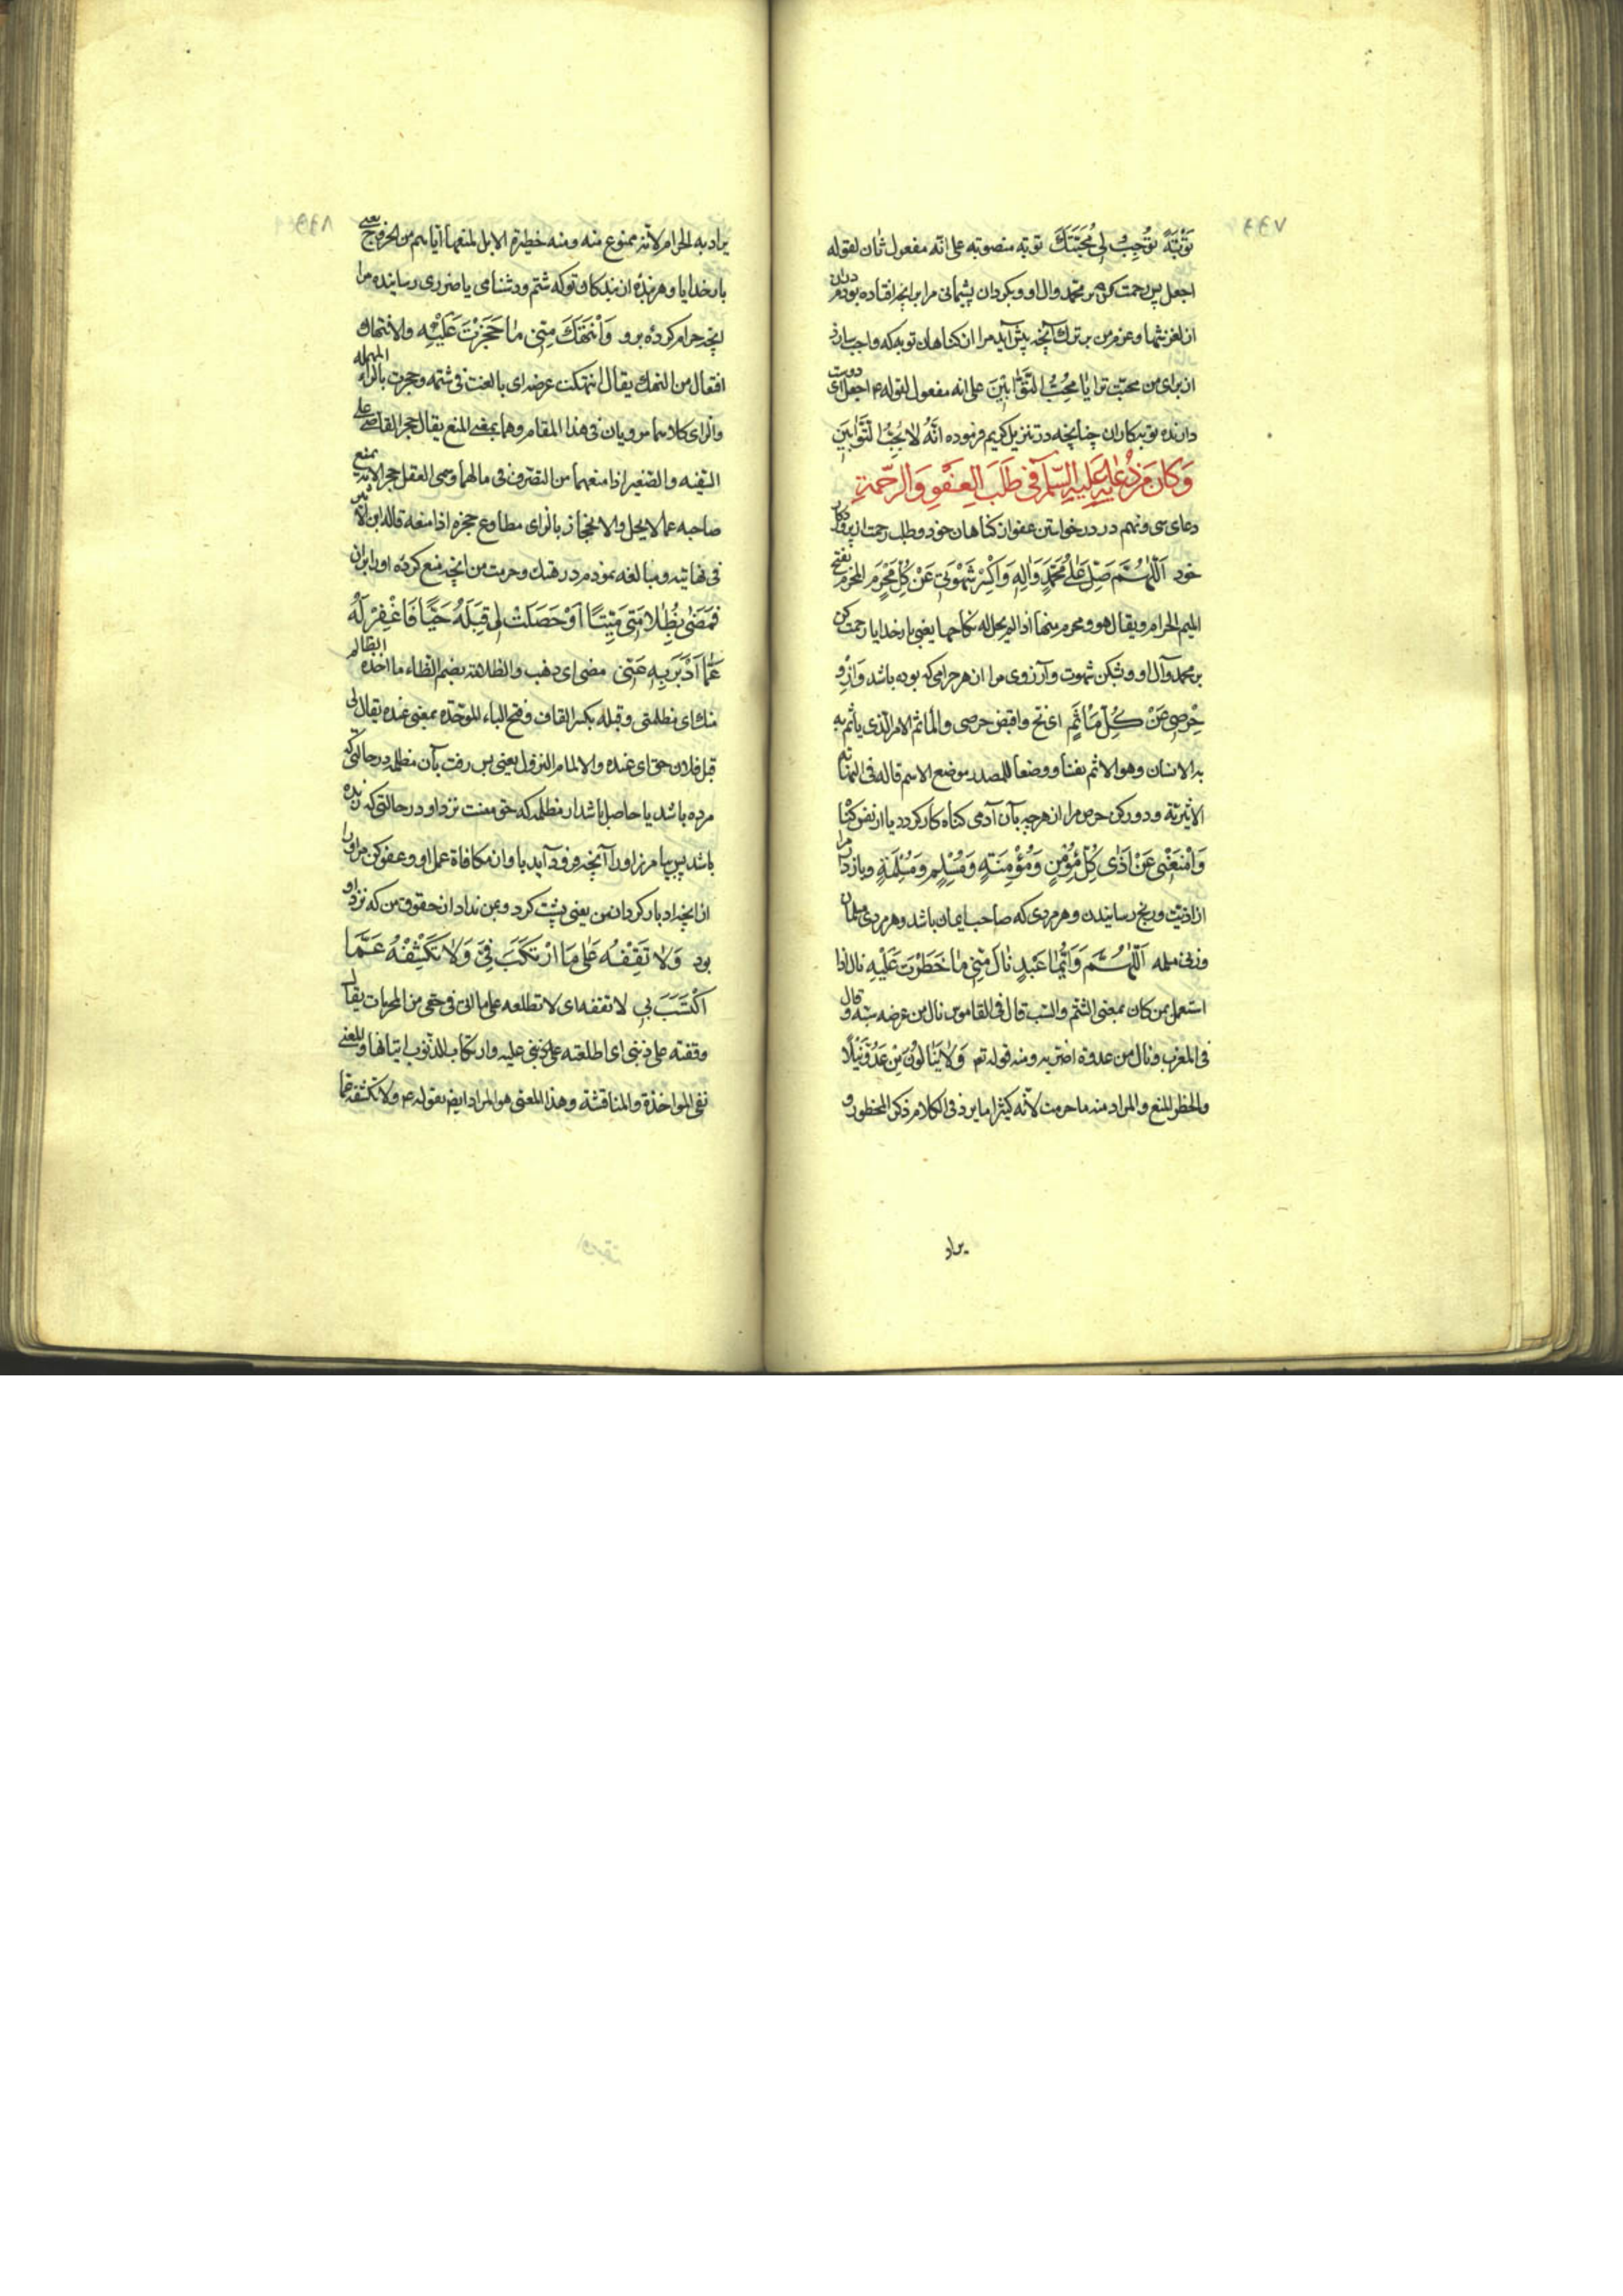 تَوْبَةً تُوجِبُ لِي مَحَبَّتَكَ توبه منصوبه على انه مفعول ثان لقوله
اجعل پس رحمت كن بر محمد وال او و بكردان پشيمانى مرا بر انچه افتاده بودم در ان
از لغزشها و عزم من بر ترك آنچه پيش آيد مرا از كناهان توبه كه واجب سازد
از براى من محبت ترا يَا مُحِبَّ التَّوَّابِينَ على انه مفعول لقوله اجعل اى دوست
دارنده توبه كاران چنانچه در تنزيل كريم فرموده انَّهُ يُحِبُّ التَّوَّابِينَ
وَكَانَ مِنْ دُعَائِهِ عَلَيْهِ السَّلَام فِي طَلَبِ الْعَفْوِ وَالرَّحْمَةِ
دعاى سى و نهم در درخواستن عفو از كناهان خود و طلب رحمت از پروردكار
خود اَللّٰهُمَّ صَلِّ عَلَى مُحَمَّدٍ وَالِهِ وَاكْسِرْ شَهْوَتِي عَنْ كُلِّ مَحْرَمٍ المحرم بفتح
الميم الحرام ويقال هو ذو محرم منها اذا لم يحل له نكاحها يعنى بار خدايا رحمت كن
بر محمد وآل او و بشكن شهوت و آرزوى مرا از هر حرامى كه بوده باشد وَازْوِ
حِرْصِي عَنْ كُلِّ مَأْثَمٍ اى نح واقبض حرصى والمأثم الامر الذى يأثم به
به الانسان وهو الاثم نفسا ووضعا للمصدر موضع الاسم قاله فى النهاية
الاثيرية و دور كن حرص مرا از هرچه بآن آدمى كناه كار كردد يا از نفس كناه
وَامْنَعْنِي عَنْ اَذَى كُلِّ مُؤْمِنٍ وَمُؤْمِنَةٍ وَمُسْلِمٍ وَمُسْلِمَةٍ و بازدار مرا
از اذيت و رنج رسانيدن و هر مردى كه صاحب ايمان باشد و هر مردى مسلمان
و زنى مسلمه اَللّٰهُمَّ وَاَيُّمَا عَبْدٍ نَالَ مِنِّي مَا حَظَرْتَ عَلَيْهِ نال اذا
استعمل بمن كان بمعنى الشتم والسب قال فى القاموس نال من عرضه سبه و قال
فى المغرب ونال من عدوه اضر به ومنه قوله تع وَلَا يَنَالُونَ مِنْ عَدُوٍّ نَيْلًا
والحظر المنع والمراد منه ما حرمت لانه كثيرا ما يرد فى الكلام ذكر المحظور و
يراد
يراد به الحرام لانه ممنوع منه ومنه حظيرة الابل لمنعها اياهم من الخروج يعنى
بار خدايا و هر بندۀ از بندكان تو كه شتم و دشنامى يا ضررى رسانيده مرا
انچه حرام كردۀ برو وَانْتَهَكَ مِنِّي مَا حَجَزْتَ عَلَيْهِ والانتهاك
افتعال من النهك يقال انتهكت عرضه اى بالغت فى شتمه وحجرت بالراء المهملة
والزاى كلاهما مرويان فى هذا المقام وهما بمعنى المنع يقال حجر القاضى على
السفيه والصغير اذا منعهما من التصرف فى مالهما وسمى العقل حجرا لانه يمنع
صاحبه عما لا يحل والانحجاز بالزاى مطاوع حجزه اذا منعه قاله ابن الاثير
فى نهايته و مبالغه نمودم در هتك و حرمت من انچه منع كردۀ او را بر ان
فَمَضَى بِظُلَامَتِي مَيِّتًا اَوْ حَصَلَتْ لِي قِبَلَهُ حَيًّا فَاغْفِرْ لَهُ
عَمَّا اَدْبَرَ بِهِ عَنِّي مضى اى ذهب والظلامة بضم الظاء ما اخذه الظالم
منك اى مظلمتى وقبله بكسر القاف وفتح الباء الموحدة بمعنى عنده يقال لى
قبل فلان حق اى عنده والالمام النزول يعنى پس رفت بآن مظلمه در حالتى كه
مرده باشد يا حاصل باشد از مظلمه كه حق منست نزد او در حالتى كه زنده
باشد پس بيامرز او را آنچه فرود آيد باو از مكافاة عمل او و عفو كن مر او را
از انچه ادبار كرد از من يعنى پشت كرد و بمن نداد از حقوق من كه نزد او
بود وَلَا تَقِفْهُ عَلَى مَا ارْتَكَبَ فِيَّ وَلَا تَكْشِفْهُ عَمَّا
اكْتَسَبَ بِي لا تقفه اى لا تطلعه على ما اتى فى حقى من المحرمات يقال
وقفته على ذنبى اى اطلعته على ذنبى عليه وارتكاب الذنوب اتيانها والمعنى
نفى المواخذة والمناقشة وهذا المعنى هو المراد ايض بقوله ع ولا تكشفه عما